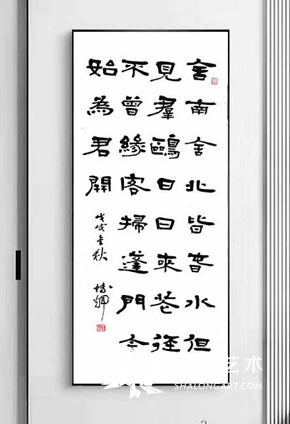 舍南舍北皆春水但
見羣鷗日日來花徑
不曾緣客掃蓬門今
始為君開
戊戌金秋
艺术
SHALONGART.COM